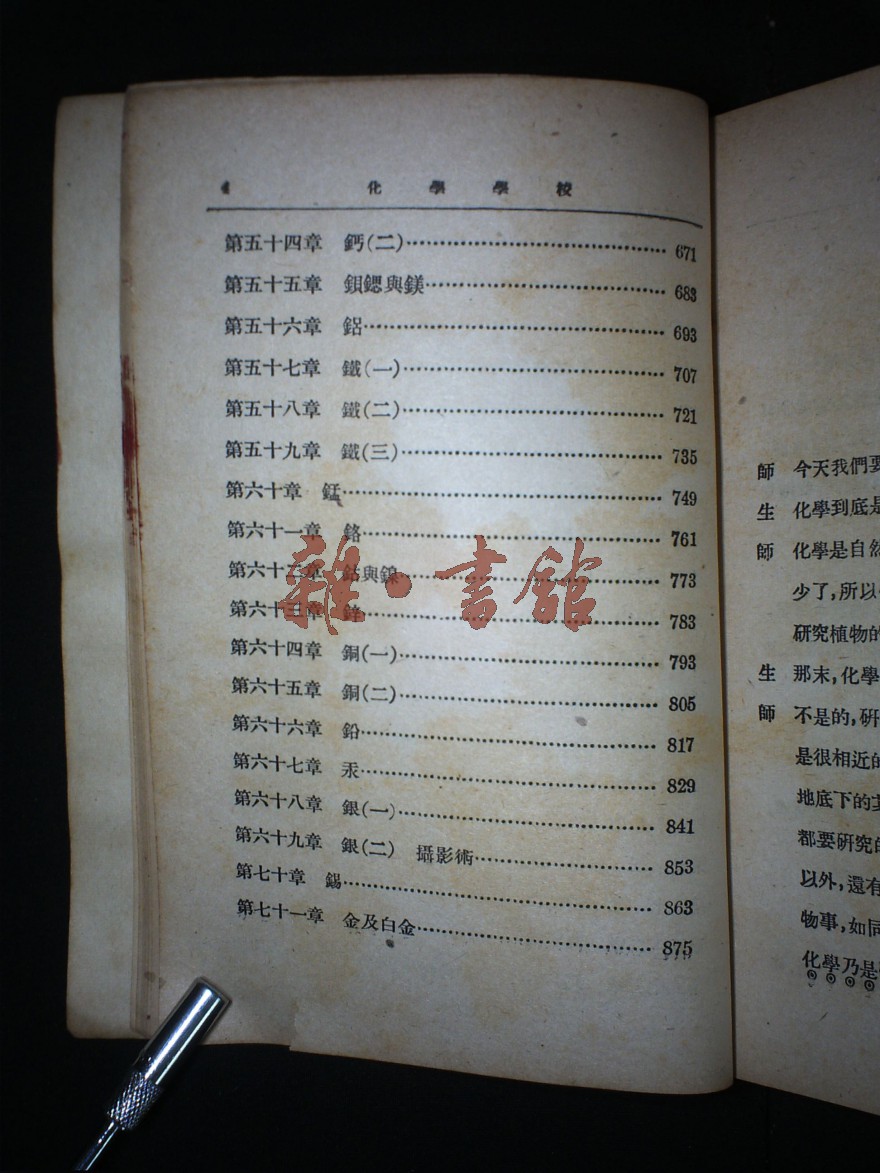 4 化學學校
第五十四章 鈣(二)……671
第五十五章 鋇鍶與鎂……683
第五十六章 鋁……693
第五十七章 鐵(一)……707
第五十八章 鐵(二)……721
第五十九章 鐵(三)……735
第六十章 錳……749
第六十一章 鉻……761
第六十二章 鈷與鎳……773
第六十三章 鋅……783
第六十四章 銅(一)……793
第六十五章 銅(二)……805
第六十六章 鉛……817
第六十七章 汞……829
第六十八章 銀(一)……841
第六十九章 銀(二) 攝影術……853
第七十章 錫……863
第七十一章 金及白金……875
雜·書館
師 今天我們要
生 化學到底是
師 化學是自然
少了,所以
研究植物的
生 那末,化學
師 不是的,研
是很相近的
地底下的其
都要研究的
以外,還有
物事,如同
化學乃是